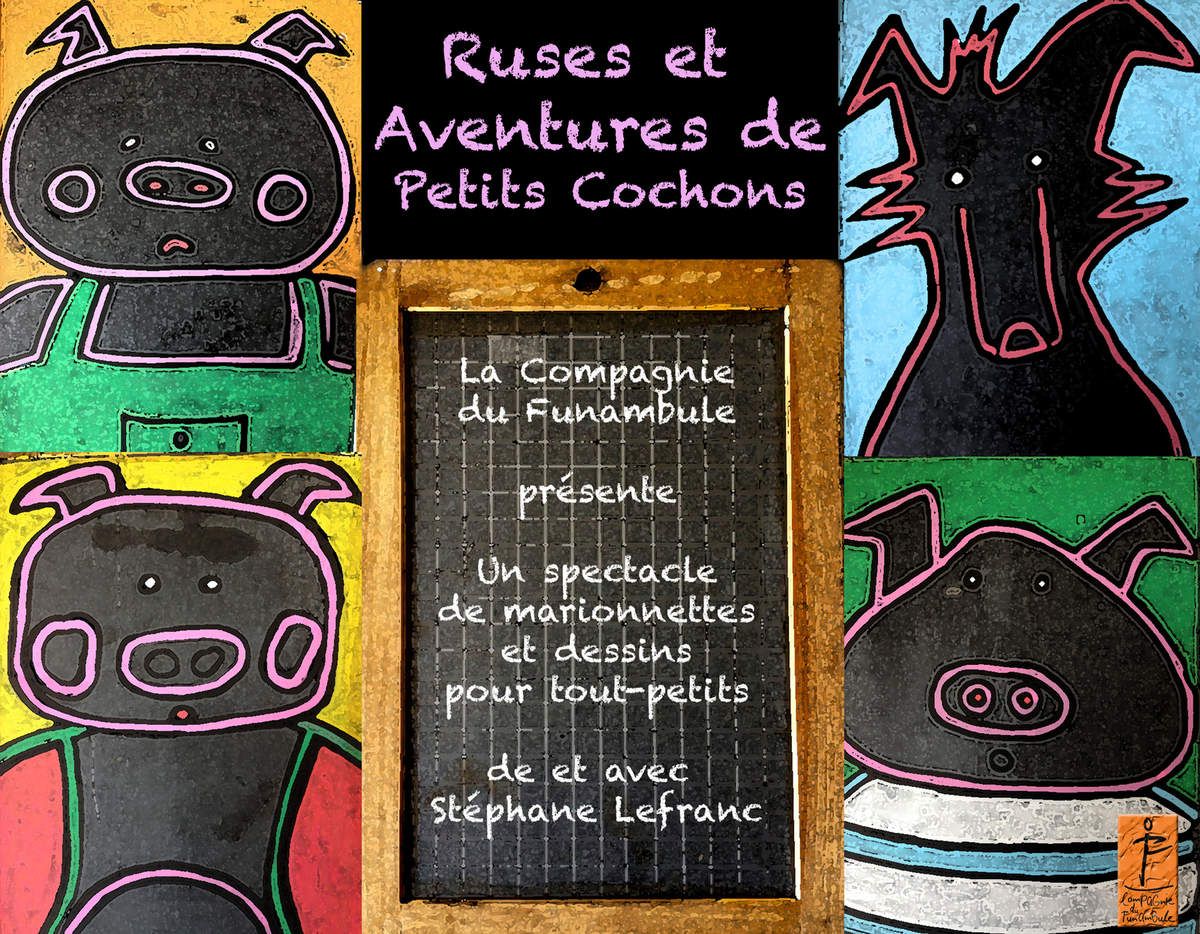 Ruses et
Aventures de
Petits Cochons
La Compagnie
du Funambule
présente
Un spectacle
de marionnettes
et dessins
pour tout-petits
de et avec
Stéphane Lefranc
Compagnie
du
Funambule